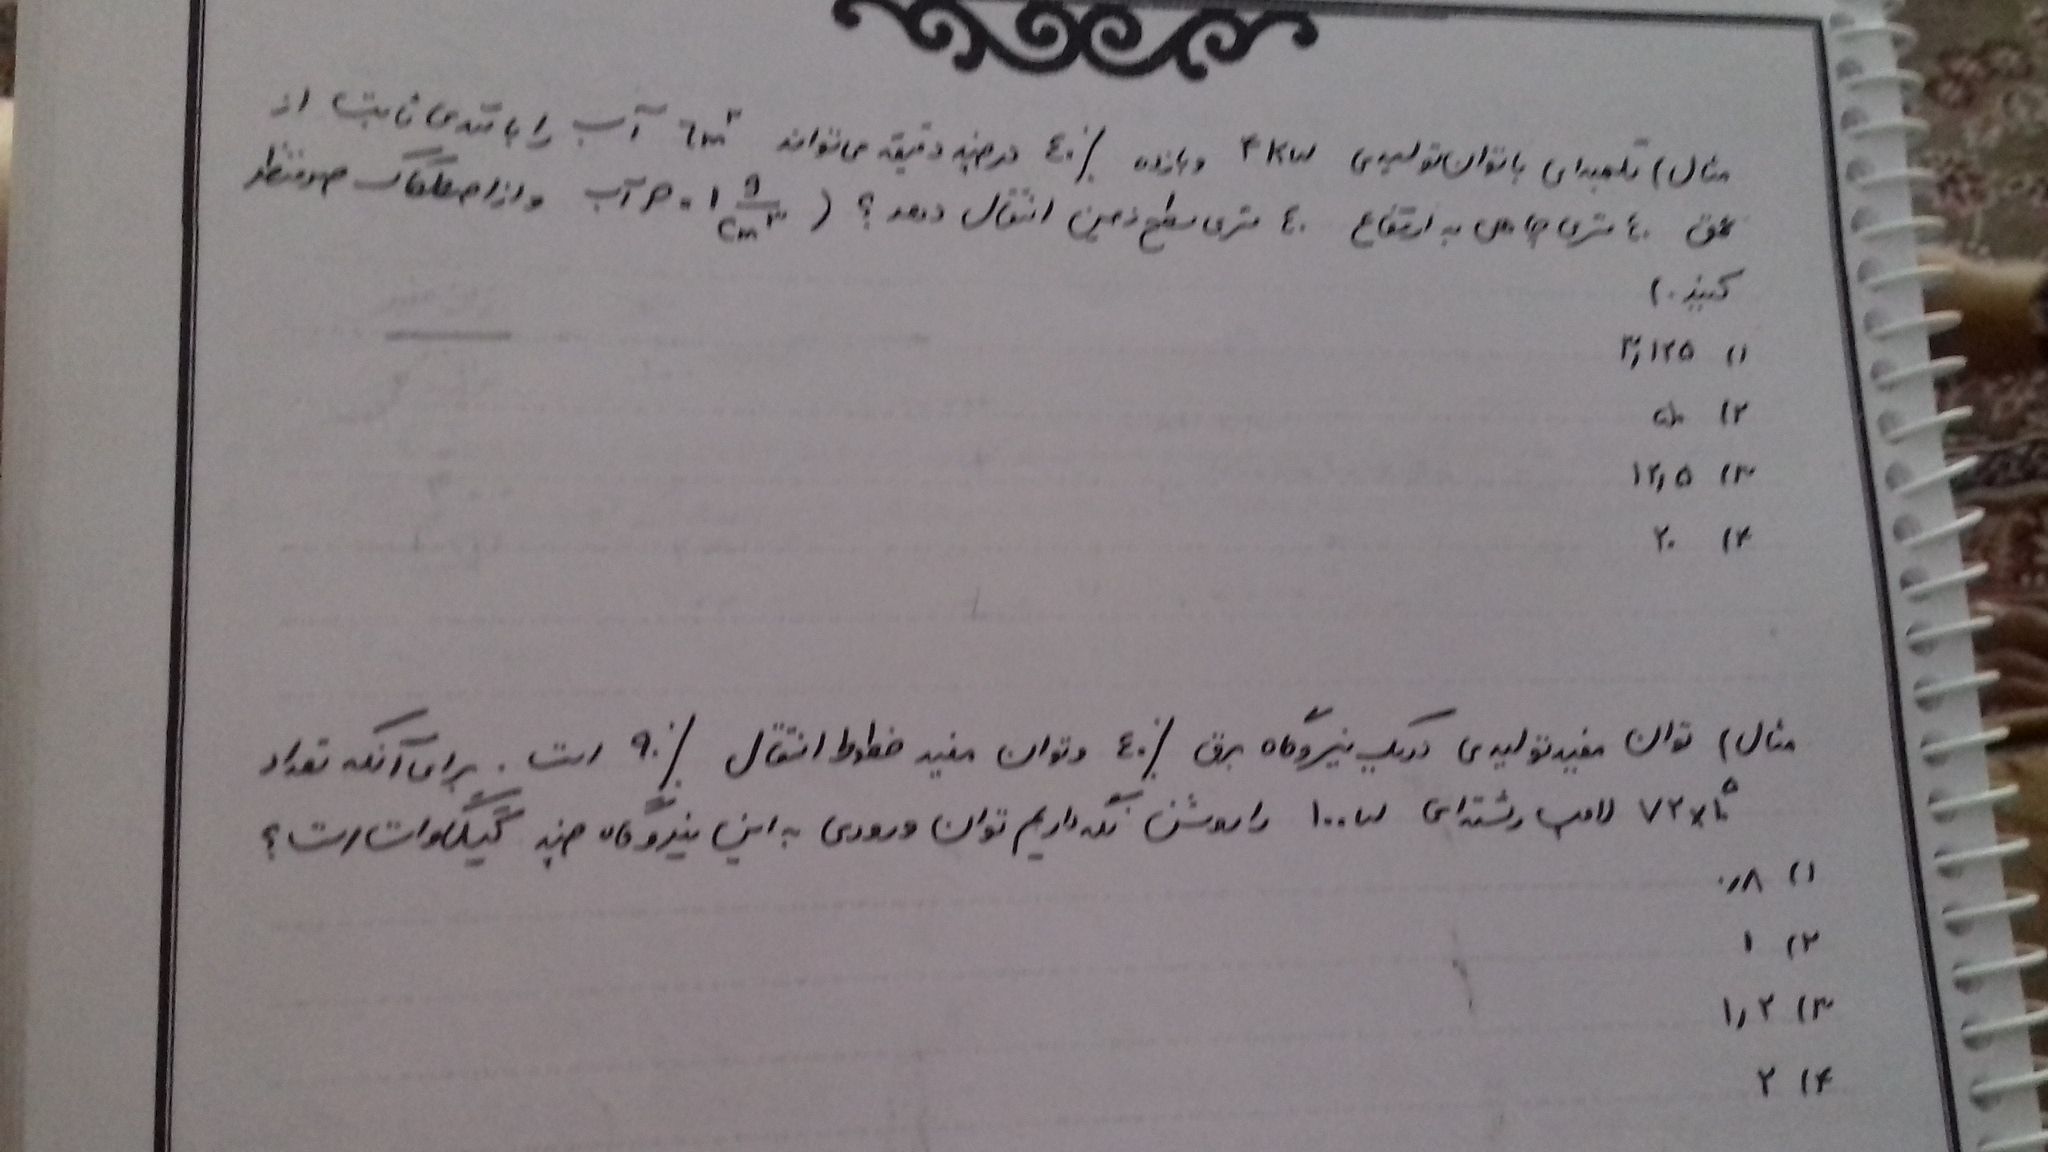 مثال) تلمبه‌ای با توان تولیدی ۴kw و بازده ٪۴۰ در چند دقیقه می‌تواند ۶m³ آب را با تندی ثابت از
عمق ۴۰ متری چاهی به ارتفاع ۴۰ متری سطح زمین انتقال دهد؟ (ρ = ۱ g/cm³ آب و از اصطکاک صرفنظر
کنید.)
۱) ۳٫۱۲۵
۲) ۵۰
۳) ۱۲٫۵
۴) ۲۰
مثال) توان مفید تولیدی در یک نیروگاه برق ٪۴۰ و توان مفید خطوط انتقال ٪۹۰ است. برای آنکه تعداد
۷۲×۱۰⁵ لامپ رشته‌ای ۱۰۰w را روشن نگه داریم توان ورودی به این نیروگاه چند گیگاوات است؟
۱) ۰٫۸
۲) ۱
۳) ۱٫۲
۴) ۲